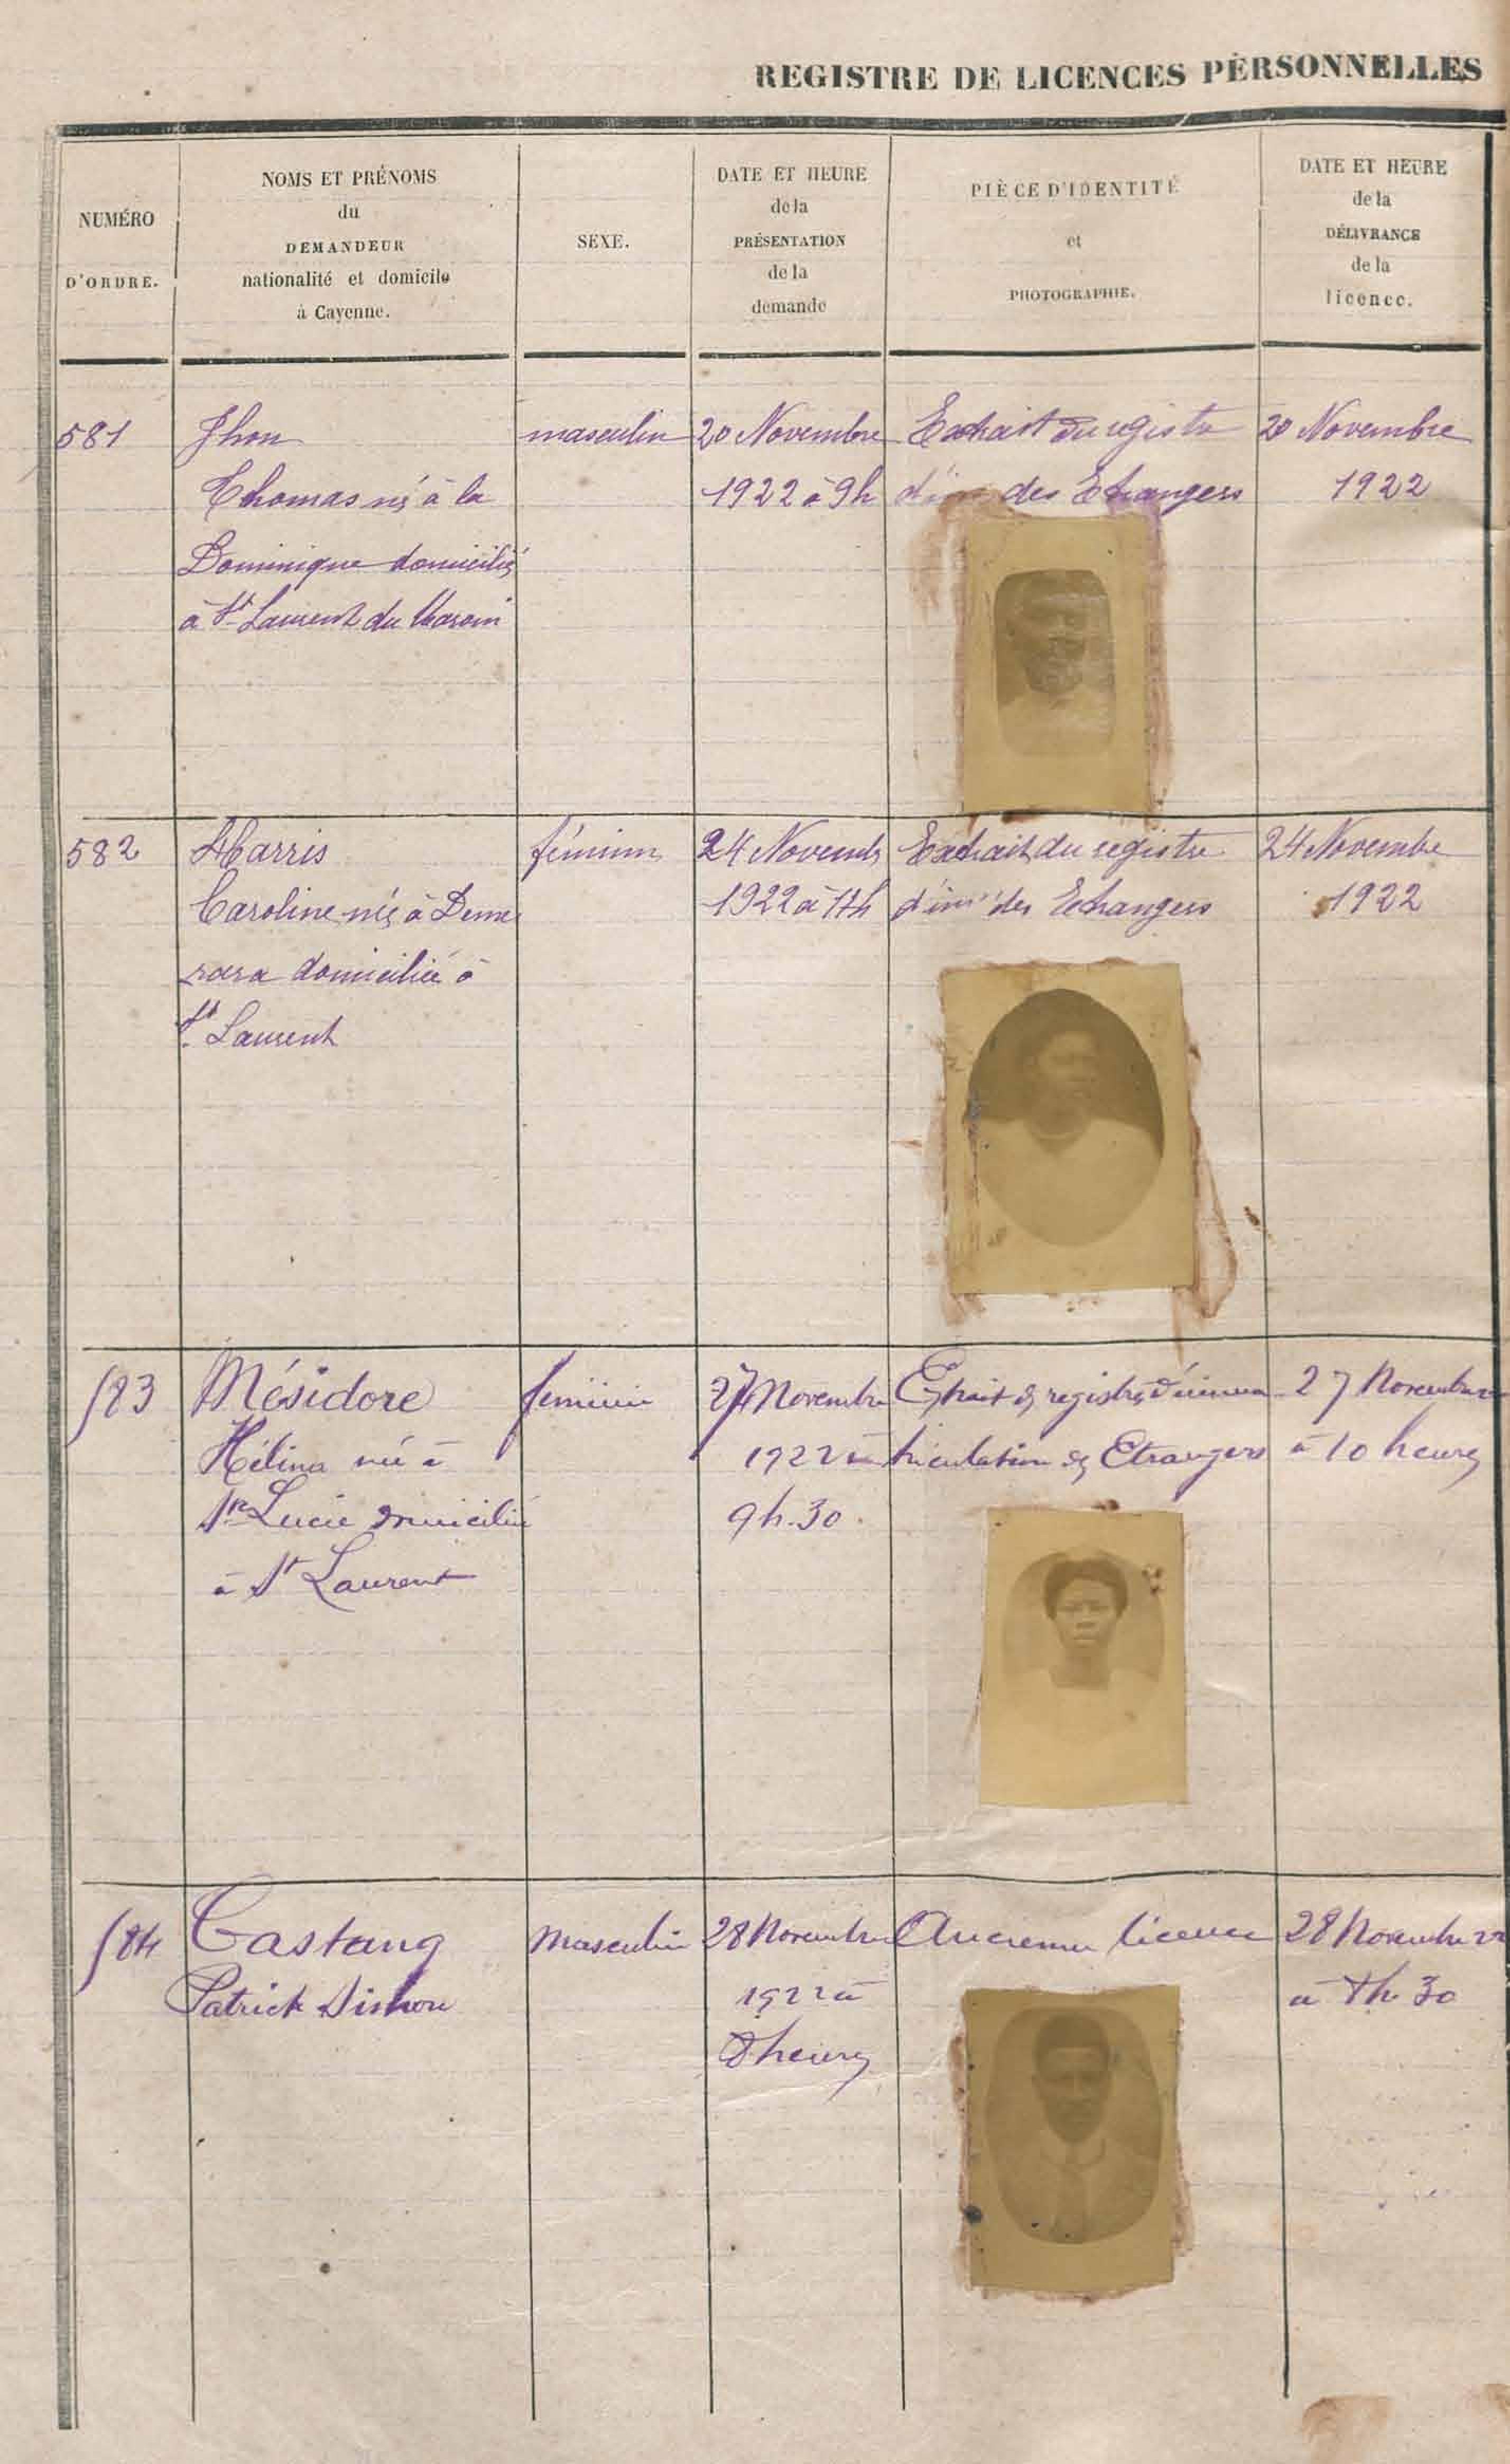 REGISTRE DE LICENCES PERSONNELLES
NUMÉRO
D'ORDRE.
NOMS ET PRÉNOMS
du
DEMANDEUR
nationalité et domicile
à Cayenne.
SEXE.
DATE ET HEURE
de la
PRÉSENTATION
de la
demande
PIÈCE D'IDENTITÉ
et
PHOTOGRAPHIE.
DATE ET HEURE
de la
DÉLIVRANCE
de la
licence.
581
Jhon
Thomas né à la
Dominique domicilié
à St Laurent du Maroni
masculin
20 Novembre
1922 à 9h
Extrait du registre
des Etrangers
20 Novembre
1922
582
Harris
Caroline née à Deme
rara domiciliée à
St Laurent
féminin
24 Novemb
1922 à
Extrait du registre
d'im des Etrangers
24 Novembre
1922
583
Mésidore
Hélina née à
Ste Lucie domiciliée
à St Laurent
feminin
27 Novembre
1922 à
9h.30
Extrait des registres d'imma
triculation des Etrangers
27 Novembre
à 10 heures
584
Castang
Patrick
masculin
28 Novembre
1922 à
8 heures
Ancienne licence
28 Novembre 22
à 8h 30